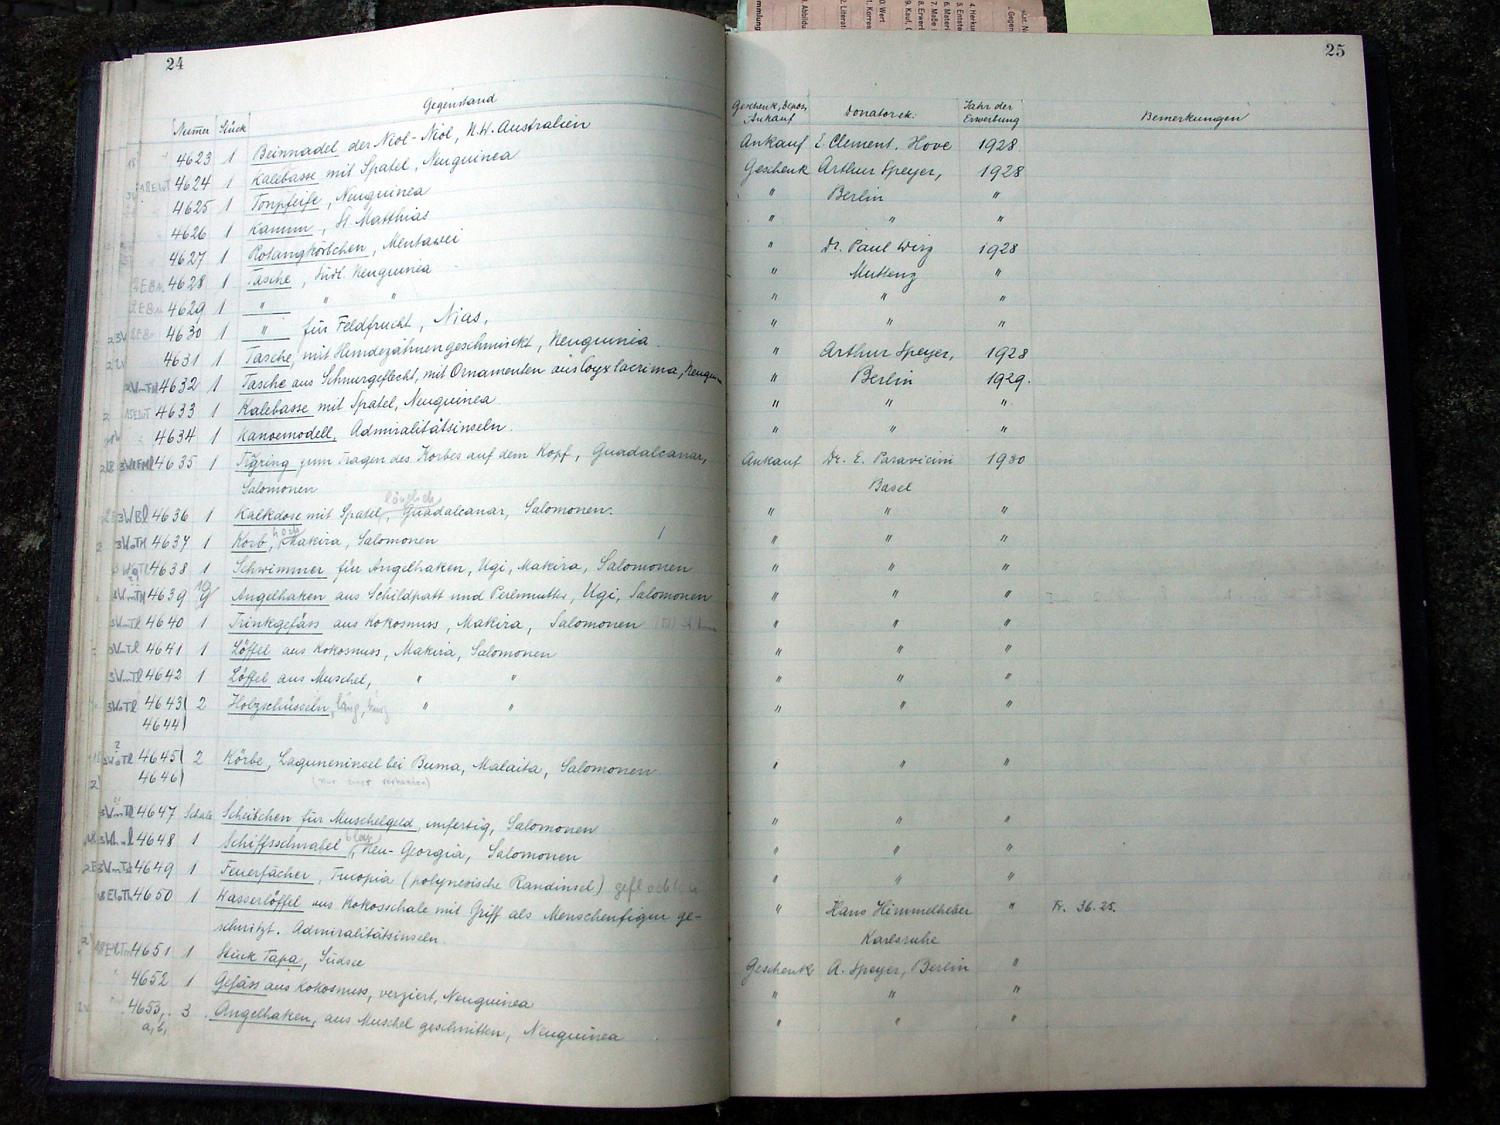 24
Gegenstand
Numer Stück
4623 1 Beinnadel der Niol-Niol, N.W. Australien
4624 1 Kalebasse mit Spatel, Neuguinea
4625 1 Tonpfeife, Neuguinea
4626 1 Kamm, St Matthias
4627 1 Rotangkörbchen, Mentawei
4628 1 Tasche, südl. Neuguinea
4629 1 " " "
4630 1 " für Feldfrucht, Nias,
4631 1 Tasche, mit Hundezähnen geschmückt, Neuguinea
4632 1 Tasche aus Schnurgeflecht, mit Ornamenten aus Coyx lacrima, Neuguin
4633 1 Kalebasse mit Spatel, Neuguinea
4634 1 Kanoemodell, Admiralitätsinseln.
4635 1 Tragring zum Tragen des Korbes auf dem Kopf, Guadalcanar,
Salomonen
4636 1 Kalkdose mit Spatel, länglich Guadalcanar, Salomonen.
4637 1 Korb, hoch Makira, Salomonen
4638 1 Schwimmer für Angelhaken, Ugi, Makira, Salomonen
4639 Angelhaken aus Schildpatt und Perlmutter, Ugi, Salomonen
4640 1 Trinkgefäss aus Kokosnuss, Makira, Salomonen
4641 1 Löffel aus Kokosnuss, Makira, Salomonen
4642 1 Löffel aus Muschel, " "
4643 2 Holzschüsseln, lang, " "
4644
4645 2 Körbe, Laguneninsel bei Buma, Malaita, Salomonen
4646 (nur einer vorhanden)
4647 Schale Scheibchen für Muschelgeld, unfertig, Salomonen
4648 1 Schiffsschnabel, Neu-Georgia, Salomonen
4649 1 Feuerfächer, Tucopia (polynesische Randinsel) geflochten
4650 1 Wasserlöffel aus Kokosschale mit Griff als Menschenfigur ge-
schnitzt. Admiralitätsinseln.
4651 1 Stück Tapa, Südsee
4652 1 Gefäss aus Kokosnuss, verziert, Neuguinea
4653, 3 Angelhaken, aus Muschel geschnitten, Neuguinea
a, b,
25
Geschenk, Depos, Ankauf Donator etc. Jahr der Erwerbung Bemerkungen
Ankauf E. Clement. Hove 1928
Geschenk Arthur Speyer, 1928
" Berlin "
" " "
" Dr. Paul Wirz 1928
" Muttenz "
" " "
" " "
" Arthur Speyer, 1928
" Berlin 1929.
" " "
" " "
Ankauf Dr. E. Paravicini 1930
Basel
" " "
" " "
" " "
" " "
" " "
" " "
" " "
" " "
" " "
" " "
" " "
" " "
" Hans Himmelheber " Fr. 36.25.
Karlsruhe
Geschenk A. Speyer, Berlin "
" " "
" " "